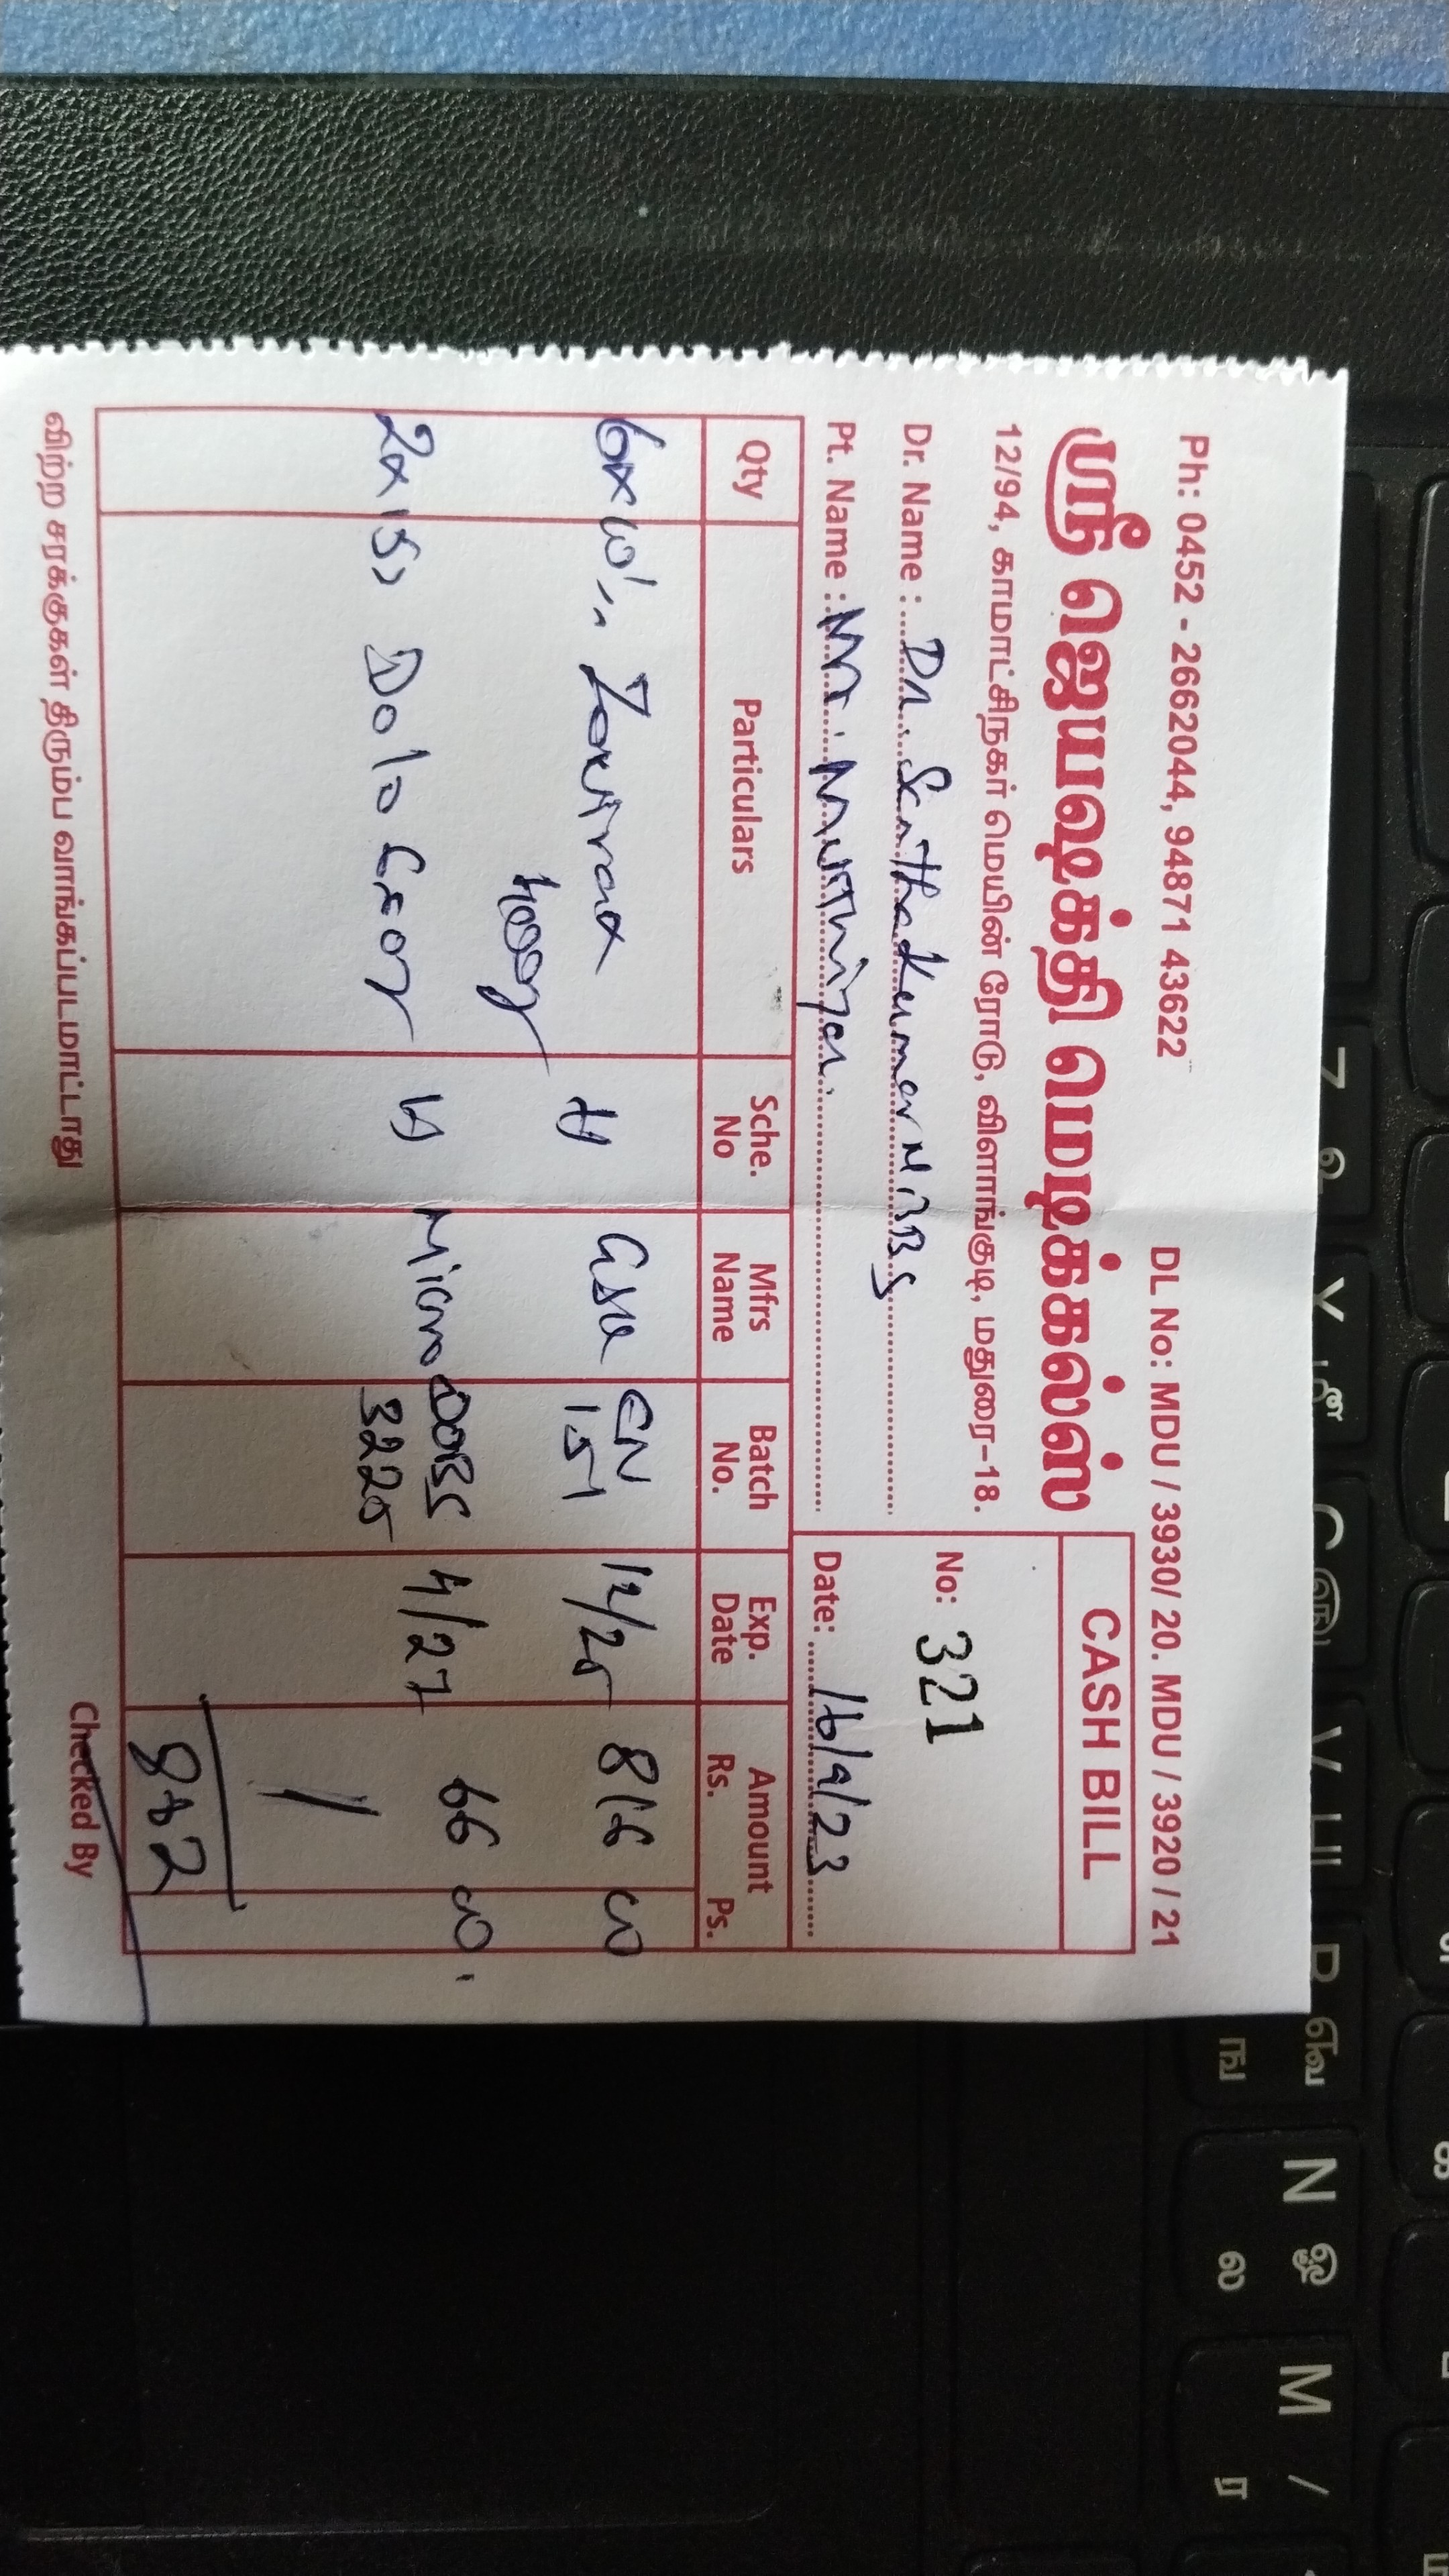 Ph: 0452 - 2662044, 94871 43622 DL No: MDU / 3930/ 20. MDU / 3920 / 21
ஸ்ரீ ஜெயஷக்தி மெடிக்கல்ஸ்
CASH BILL
12/94, காமாட்சிநகர் மெயின் ரோடு, விளாங்குடி, மதுரை-18.
No: 321
Dr. Name : Dr. Santhakumar MBBS
Pt. Name : Mr. Murthi
Date: 16/9/23
Qty Particulars Sche. No Mfrs Name Batch No. Exp. Date Amount Rs. Ps.
6x10 Zovirax H GSK EN 151 12/25 816 00
400mg
2x15 Dolo 650 H Micro DOBS 3225 4/27 66 00
882
விற்ற சரக்குகள் திரும்ப வாங்கப்படமாட்டாது Checked By
7 உ
Y
C
V
U
P வே ங
N ஓ ல
M / ர